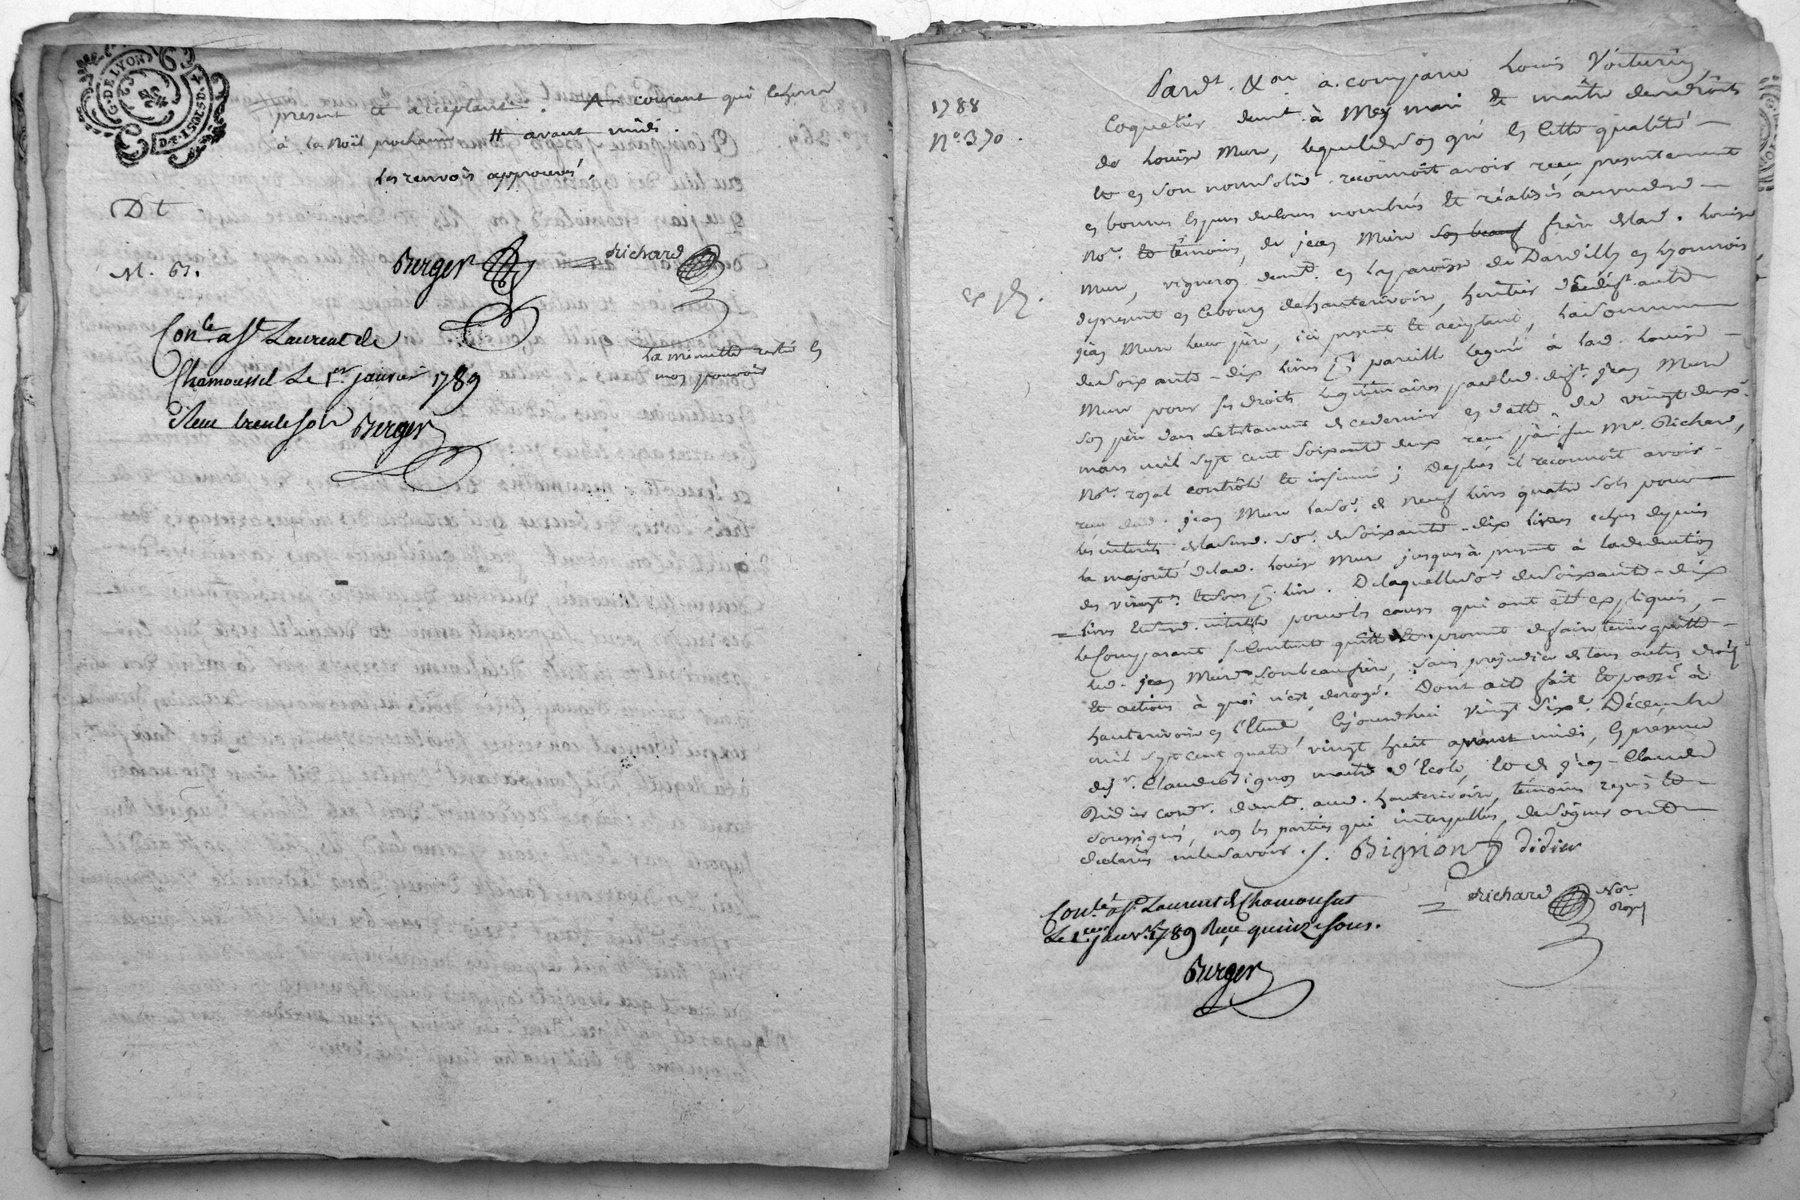 G. DE LYON
D.T. 1 SOL 8 D.
present et acceptant. courant qui
à la Noël prochaine avant midi.
les renvois approuvés.
Dt
M. 61.
Berger Richard
Con.lé a St Laurent de
Chamousset Le 1.er janvier 1789
Reçu trente sols Berger
La minutte restée en
mon pouvoir
1788
N.º 370.
Pard.t Nore a comparu Louis Voiturin
Coquetier demt. à mary et maitre des droits
de Louise Mure, lequel de son gré en cette qualité
et en son nom solid. reconnoit avoir reçu presentement
en bonnes espèces de cours nombrés et réalisés au vu de
No.re et témoins, de jean Mure son beau frère de lad. Louise
Mure, vigneron demt. en la paroisse de Dareizé en Lyonnois
de present en le bourg de hauterivoire, heritier dud. deft. autre
jean Mure leur père, ici present et acceptant, la somme
de soixante-dix livres pareille leguée à lad. Louise
Mure pour ses droits legitimaires par led. deft. jean Mure
son père dans le testament de ce dernier en datte du vingt deux
mars mil sept cent soixante deux reçu par feu Me. Richard,
No.re royal contrôlé et insinué; De plus il reconnoit avoir
reçu dud. jean Mure la so.e de neuf livres quatre sols pour
les interets de la susd. so.e de soixante-dix livres echus depuis
la majorité de lad. Louise Mure jusques à present à la deduction
des vingt.es De laquelle so.e de soixante-dix
livres et susd. interets pour les causes qui ont été expliquées,
le Comparant se contente quitte et promet de faire tenir quitte
led. jean Mure son beau frère, sans prejudice de tous autres droits
et actions à quoi n'est derogé. Dont acte fait et passé à
hauterivoire en l'Etude, cejourd'hui vingt six.e Décembre
mil sept cent quatre vingt huit avant midi, en présence
de s.r Claude Bignon maitre d'Ecole, et de jean-Claude
Didier cord.r demt. aud. hauterivoire, témoins requis et
soussignés, non les parties qui interpellées de signer ont
declaré ne le savoir. Bignon Didier
Richard Nore
Roy.l
Con.lé a St Laurent de Chamousset
Le 1.er janv.r 1789 Reçu quinze sous.
Berger